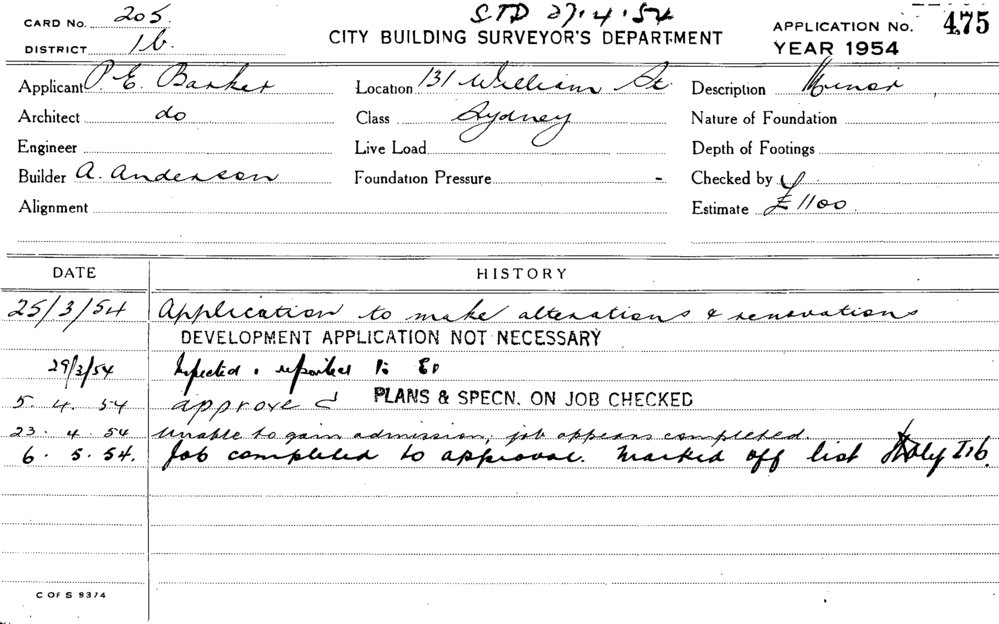 CARD No. 205. STD 27.4.54 APPLICATION No. 475
DISTRICT 1b. CITY BUILDING SURVEYOR'S DEPARTMENT YEAR 1954
Applicant P. E. Barker Location 131 William St. Description Minor
Architect do Class Sydney Nature of Foundation
Engineer Live Load Depth of Footings
Builder A. Anderson Foundation Pressure - Checked by
Alignment Estimate £1100
DATE HISTORY
25/3/54 Application to make alterations & renovations
DEVELOPMENT APPLICATION NOT NECESSARY
29/3/54 Inspected & reported to
5. 4. 54 approved PLANS & SPECN. ON JOB CHECKED
23. 4. 54 Unable to gain admission, job appears completed.
6. 5. 54. Job completed to approval. Marked off list
C OF S 9374